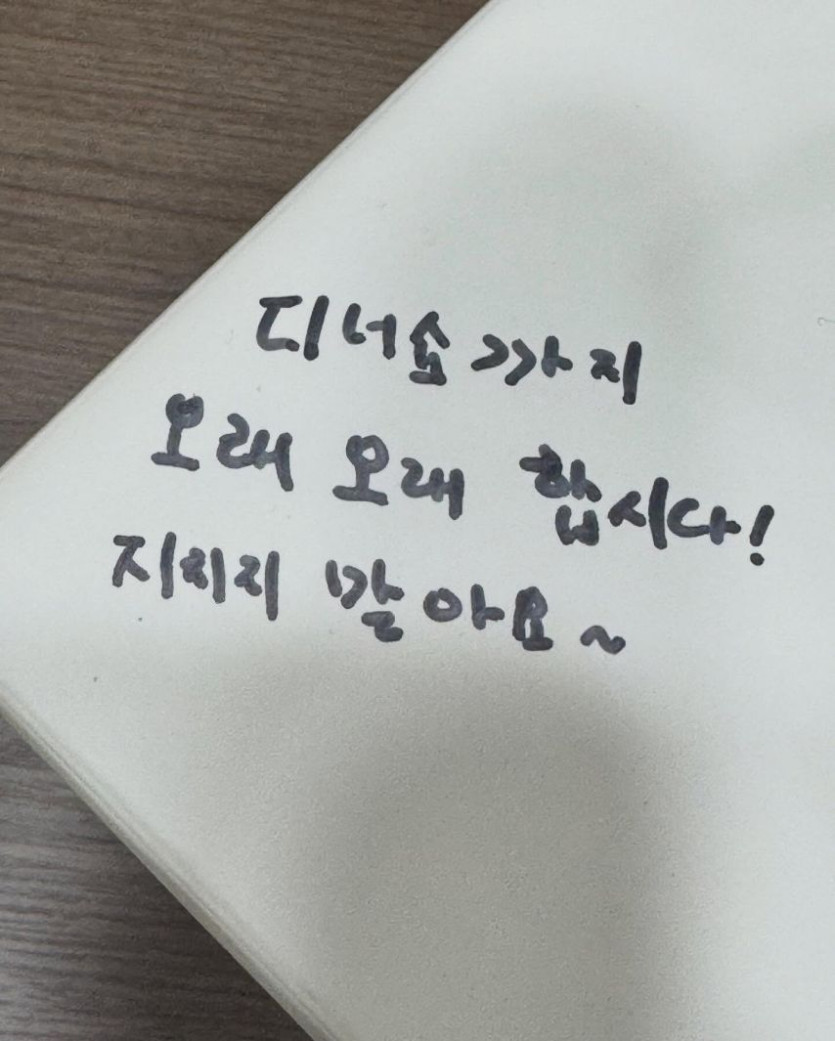 디너쇼까지
오래 오래 합시다!
지치지 말아요~